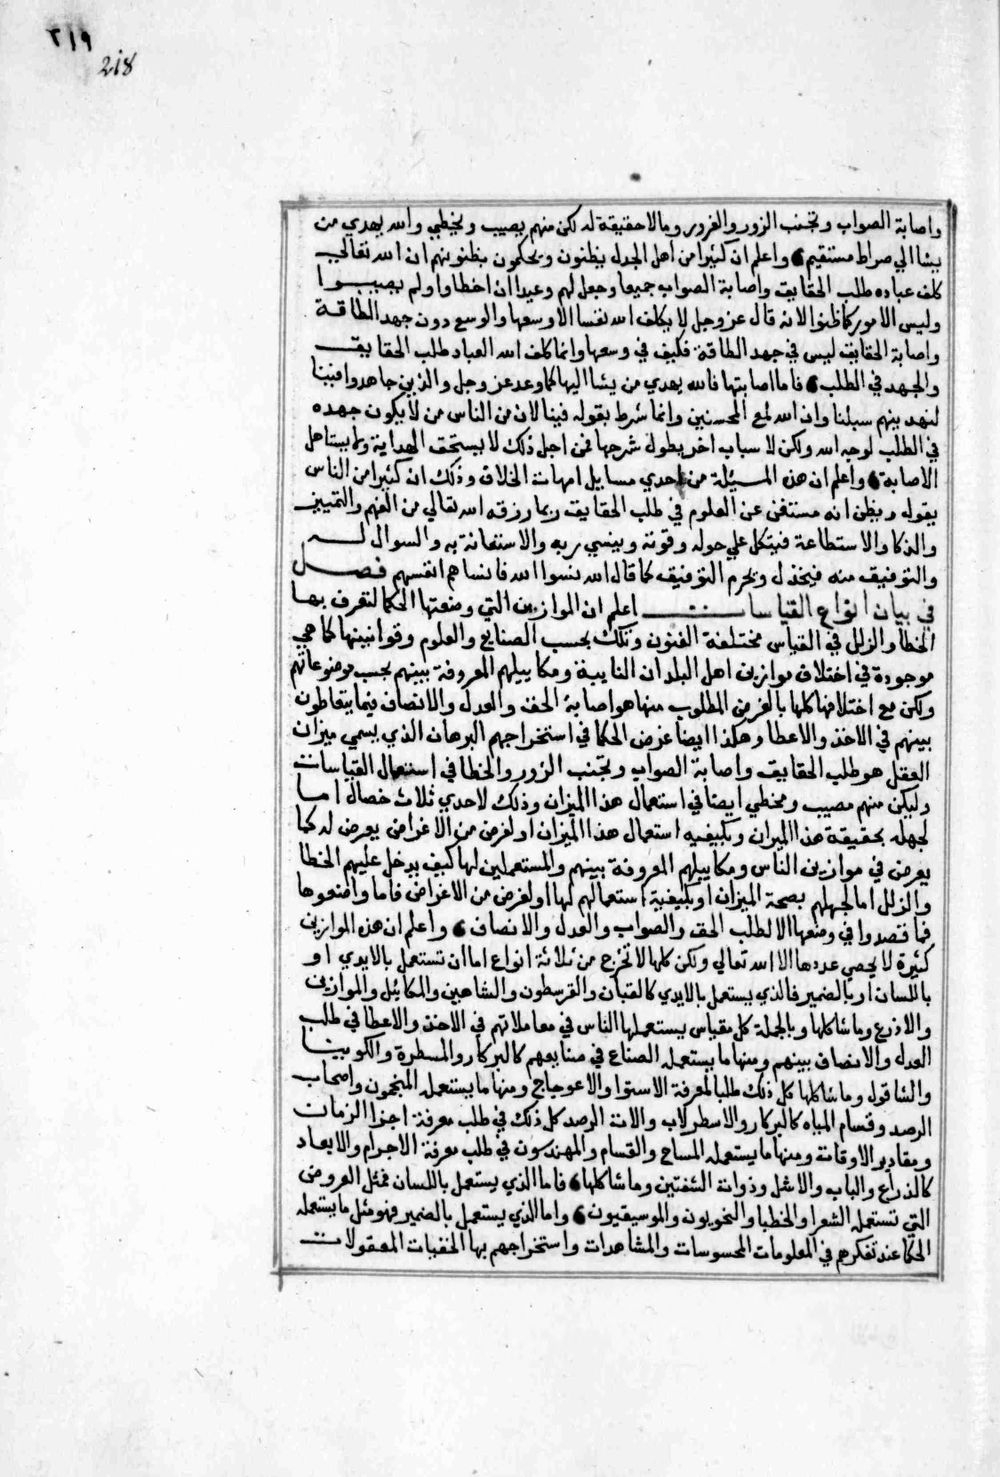 ٢١٩
218
واصابة الصواب وتجنب الزور والغرور ومالا حقيقة له لكن منهم يصيب ويخطي والله يهدي من
يشا الي صراط مستقيم واعلم ان كثيرا من اهل الجدل يظنون ويحكمون بظنونهم ان الله تعالي
كلف عباده طلب الحقايق واصابة الصواب جميعا وجعل لهم وعيدا ان اخطاوا ولم يصيبوا
وليس الامور كما ظنوا لانه قال عز وجل لا يكلف الله نفسا الا وسعها والوسع دون جهد الطاقة
واصابة الحقايق ليس في جهد الطاقة فكيف في وسعها وانما كلف الله العباد طلب الحقايق
والجهد في الطلب فاما اصابتها فالله يهدي من يشا اليها كما وعد عز وجل والذين جاهدوا فينا
لنهدينهم سبلنا وان الله لمع المحسنين وانما شرط بقوله فينا لان من الناس من لا يكون جهده
في الطلب لوجه الله ولكن لاسباب اخر يطول شرحها فمن اجل ذلك لا يستحق الهداية ولا يستاهل
الاصابة واعلم ان هذه المسيلة من احدي مسايل امهات الخلاف وذلك ان كثيرا من الناس
يقوله ويظن انه مستغن عن العلوم في طلب الحقايق ربما رزقه الله تعالي من الفهم والتمييز
والذكا والاستطاعة فيتكل علي حوله وقوته وينسي ربه والاستعانة به والسوال له
والتوفيق منه فيخذل ويحرم التوفيق كما قال الله نسوا الله فانساهم انفسهم فصل
في بيان انواع القياسات اعلم ان الموازين التي وضعتها الحكما لتعرف بها
الخطا والزلل في القياس مختلفة الفنون وتلك بحسب الصنايع والعلوم وقوانينها كما هي
موجودة في اختلاف موازين اهل البلدان النايية ومكاييلهم المعروفة بينهم بحسب موضوعاتهم
ولكن مع اختلافها كلها بالغرض المطلوب منها هو اصابة الحق والعدل والانصاف فيما يتعاطون
بينهم في الاخذ والاعطا وهكذا ايضا غرض الحكما في استخراجهم البرهان الذي يسمي ميزان
العقل هو طلب الحقايق واصابة الصواب وتجنب الزور والخطا في استعمال القياسات
وليكن منهم مصيب ومخطي ايضا في استعمال هذا الميزان وذلك لاحدي ثلاث خصال اما
لجهله بحقيقة هذا الميزان وبكيفيه استعمال هذا الميزان او لغرض من الاغراض يعرض له كما
يعرض في موازين الناس ومكاييلهم المعروفة بينهم والمستعملين لها كيف يدخل عليهم الخطا
والزلل اما لجهلهم بصحة الميزان او بكيفية استعمالهم لها او لغرض من الاغراض فاما واضعوها
فما قصدوا في وضعها الا لطلب الحق والصواب والعدل والانصاف واعلم ان هذه الموازين
كثيرة لا يحصي عددها الا الله تعالي ولكن كلها لا تخرج من ثلاثة انواع اما ان تستعمل بالايدي او
باللسان او بالضمير فالذي يستعمل بالايدي كالقبان والقرسطون والشاهين والمكائل والموازين
والاذرع وما شاكلها وبالجملة كل مقياس يستعملها الناس في معاملاتهم في الاخذ والاعطا في طلب
العدل والانصاف بينهم ومنها ما يستعمله الصناع في صنايعهم كالبركار والمسطرة والكونيا
والشاقول وما شاكلها كل ذلك طلبا لمعرفة الاستوا والاعوجاج ومنها ما يستعمله المنجمون واصحاب
الرصد وقسام المياه كالبركار والاسطرلاب والات الرصد كل ذلك في طلب معرفة اجزا الزمان
ومقادير الاوقات ومنها ما يستعمله المساح والقسام والمهندسون في طلب معرفة الاجرام والابعاد
كالذراع والباب والاشل وذوات الشفتين وما شاكلها فاما الذي يستعمل باللسان فمثل العروض
التي تستعمله الشعرا والخطبا والنحويون والموسيقيون واما الذي يستعمل بالضمير فهو مثل ما يستعمله
الحكما عند تفكرهم في المعلومات المحسوسات والمشاهدات واستخراجهم بها الخفيات المعقولات